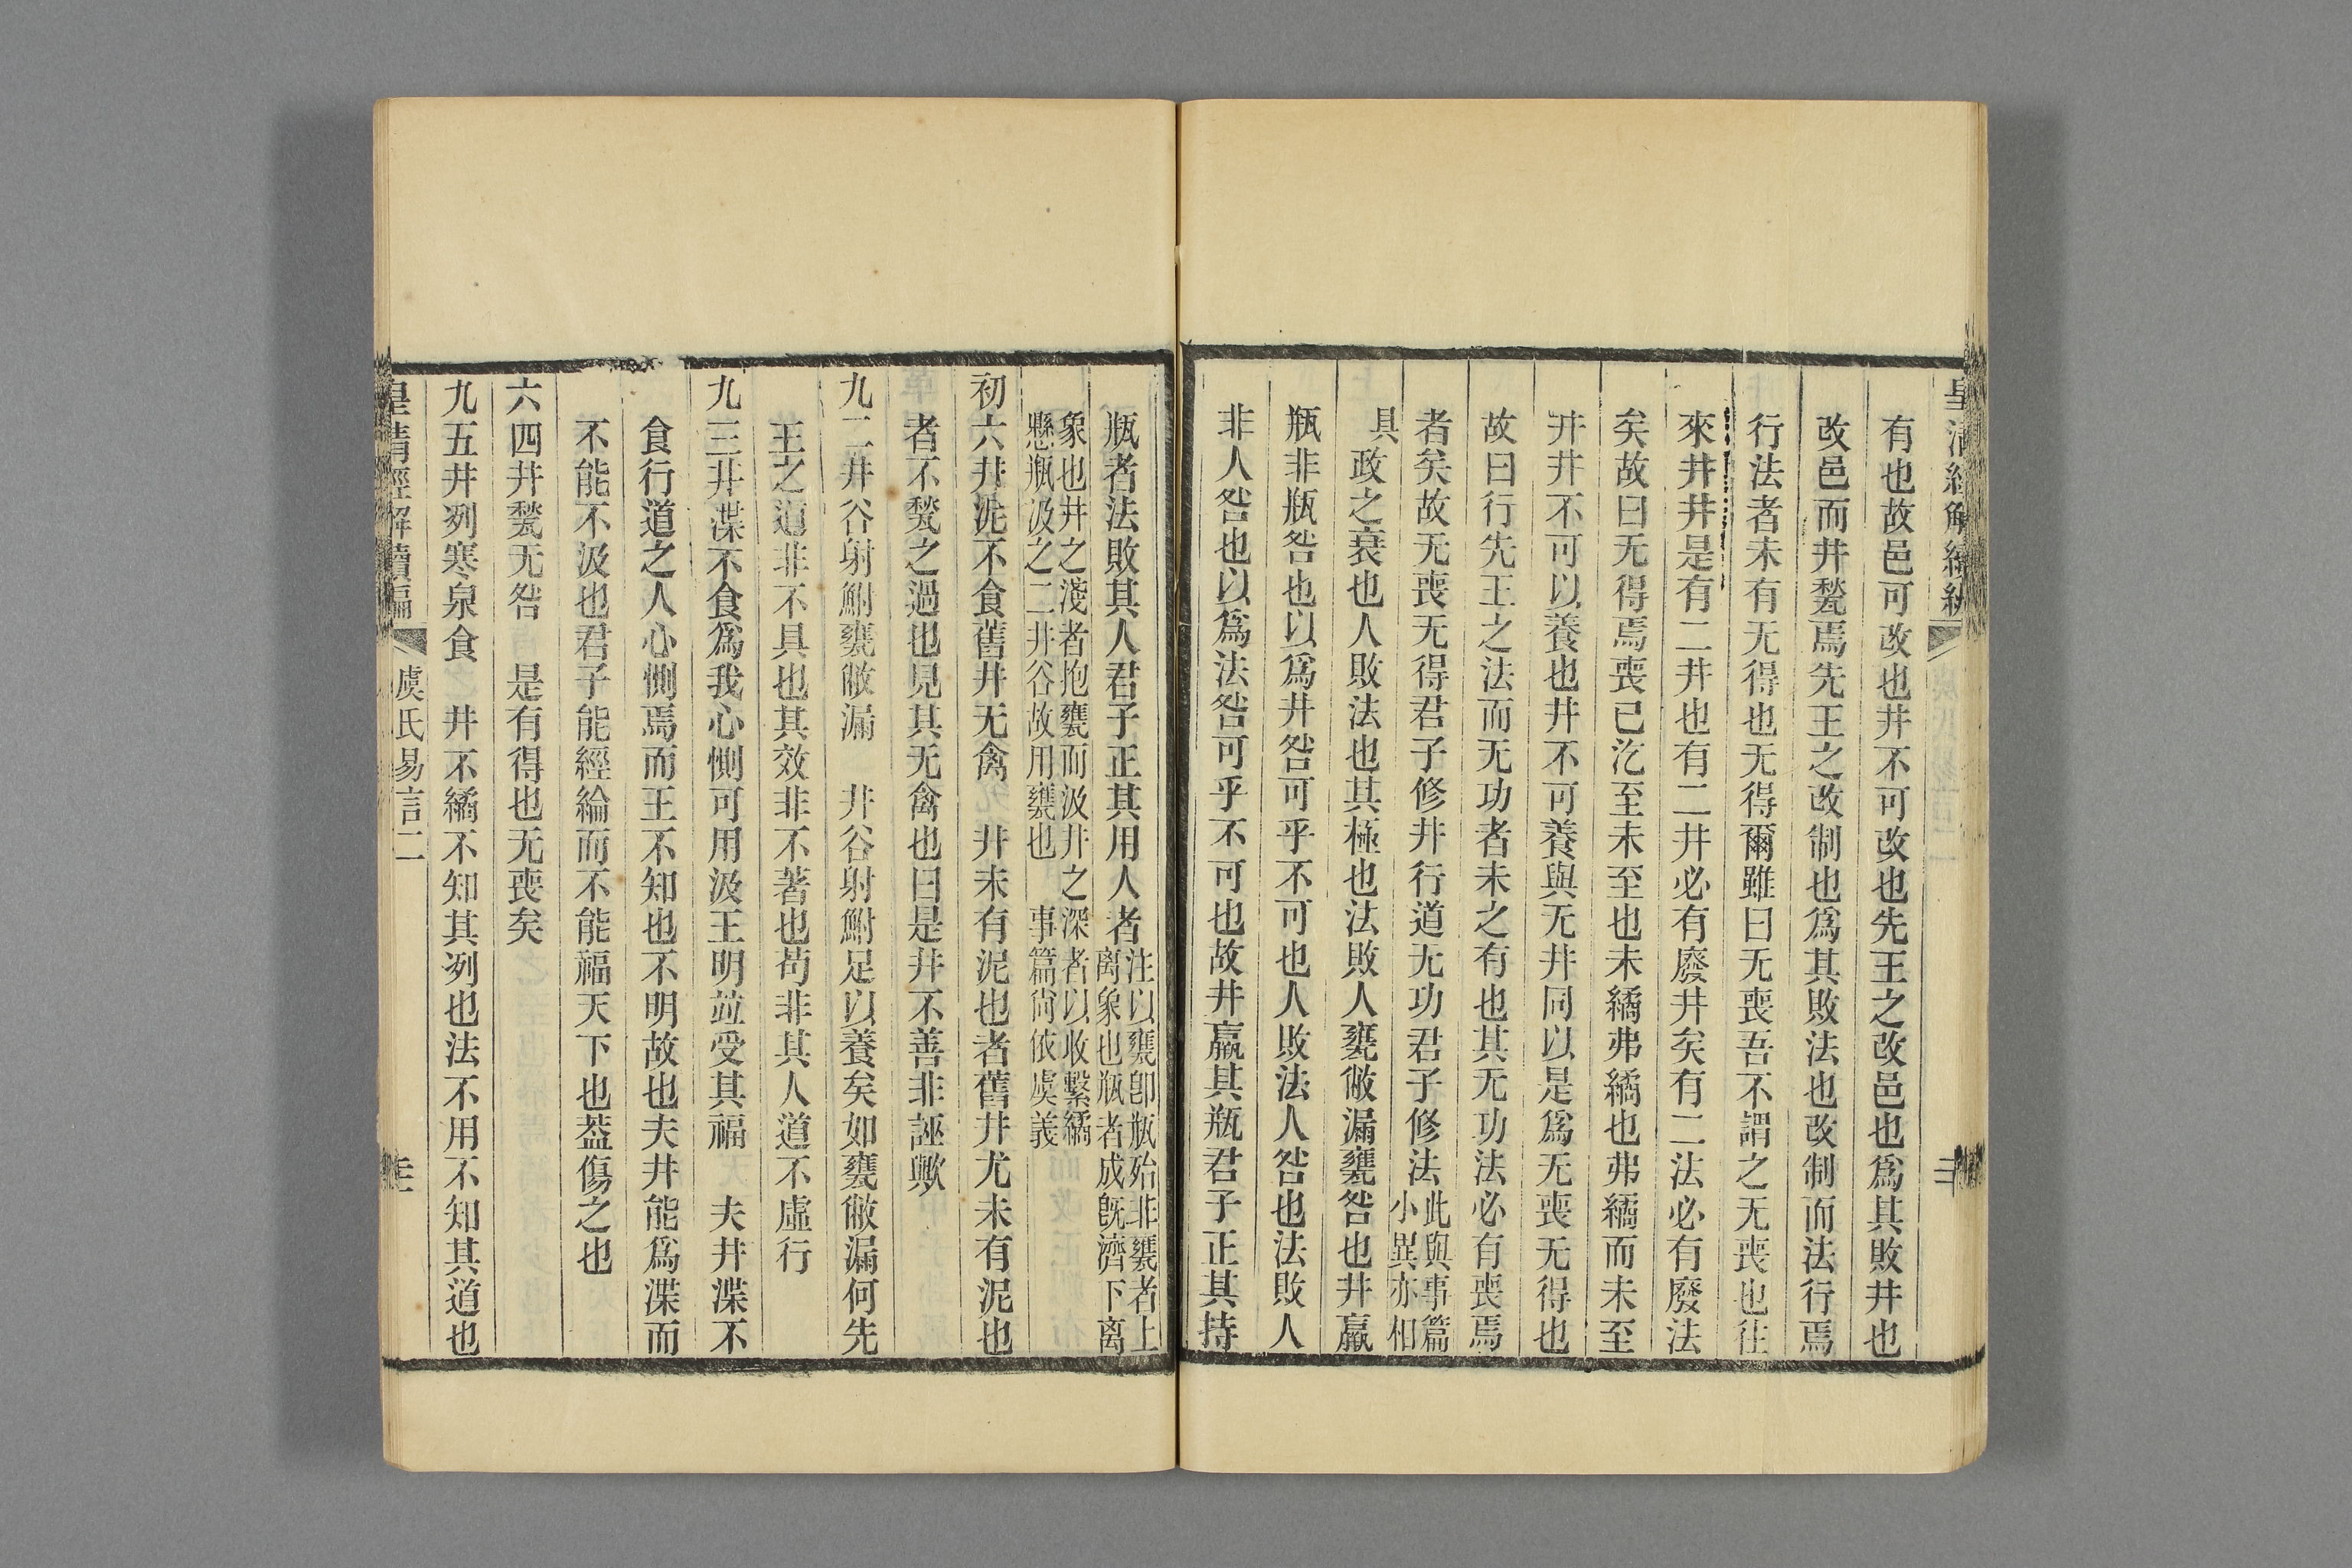 有也故邑可改也井不可改也先王之改邑也爲其敗井也
改邑而井甃焉先王之改制也爲其敗法也改制而法行焉
行法者未有无得也无得爾雖曰无喪吾不謂之无喪也往
來井井是有二井也有二井必有廢井矣有二法必有廢法
矣故曰无得焉喪已汔至未至也未繘弗繘也弗繘而未至
井井不可以養也井不可養與无井同以是爲无喪无得也
故曰行先王之法而无功者未之有也其无功法必有喪焉
者矣故无喪无得君子修井行道无功君子修法此與事篇小異亦相
具政之衰也人敗法也其極也法敗人甕敝漏甕咎也井羸
瓶非瓶咎也以爲井咎可乎不可也人敗法人咎也法敗人
非人咎也以爲法咎可乎不可也故井羸其瓶君子正其持
瓶者法敗其人君子正其用人者注以甕卽瓶殆非甕者上離象也瓶者成旣濟下離
象也井之淺者抱甕而汲井之深者以收繫繘懸瓶汲之二井谷故用甕也 事篇尙依虞義
初六井泥不食舊井无禽 井未有泥也者舊井尤未有泥也
者不甃之過也見其无禽也曰是井不善非誣歟
九二井谷射鮒甕敝漏 井谷射鮒足以養矣如甕敝漏何先
王之道非不具也其效非不著也苟非其人道不虛行
九三井渫不食爲我心惻可用汲王明並受其福 夫井渫不
食行道之人心惻焉而王不知也不明故也夫井能爲渫而
不能不汲也君子能經綸而不能福天下也葢傷之也
六四井甃无咎 是有得也无喪矣
九五井冽寒泉食 井不繘不知其冽也法不用不知其道也
皇淸經解續編 虞氏易言二